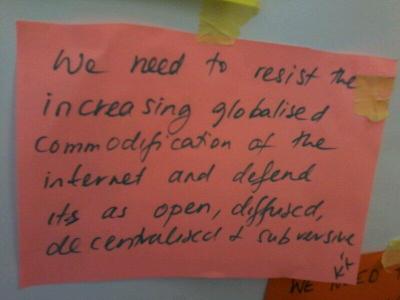 We need to resist the
increasing globalised
commodification of the
internet and defend
its as open, diffused,
decentralised & subversive
WE NEED T